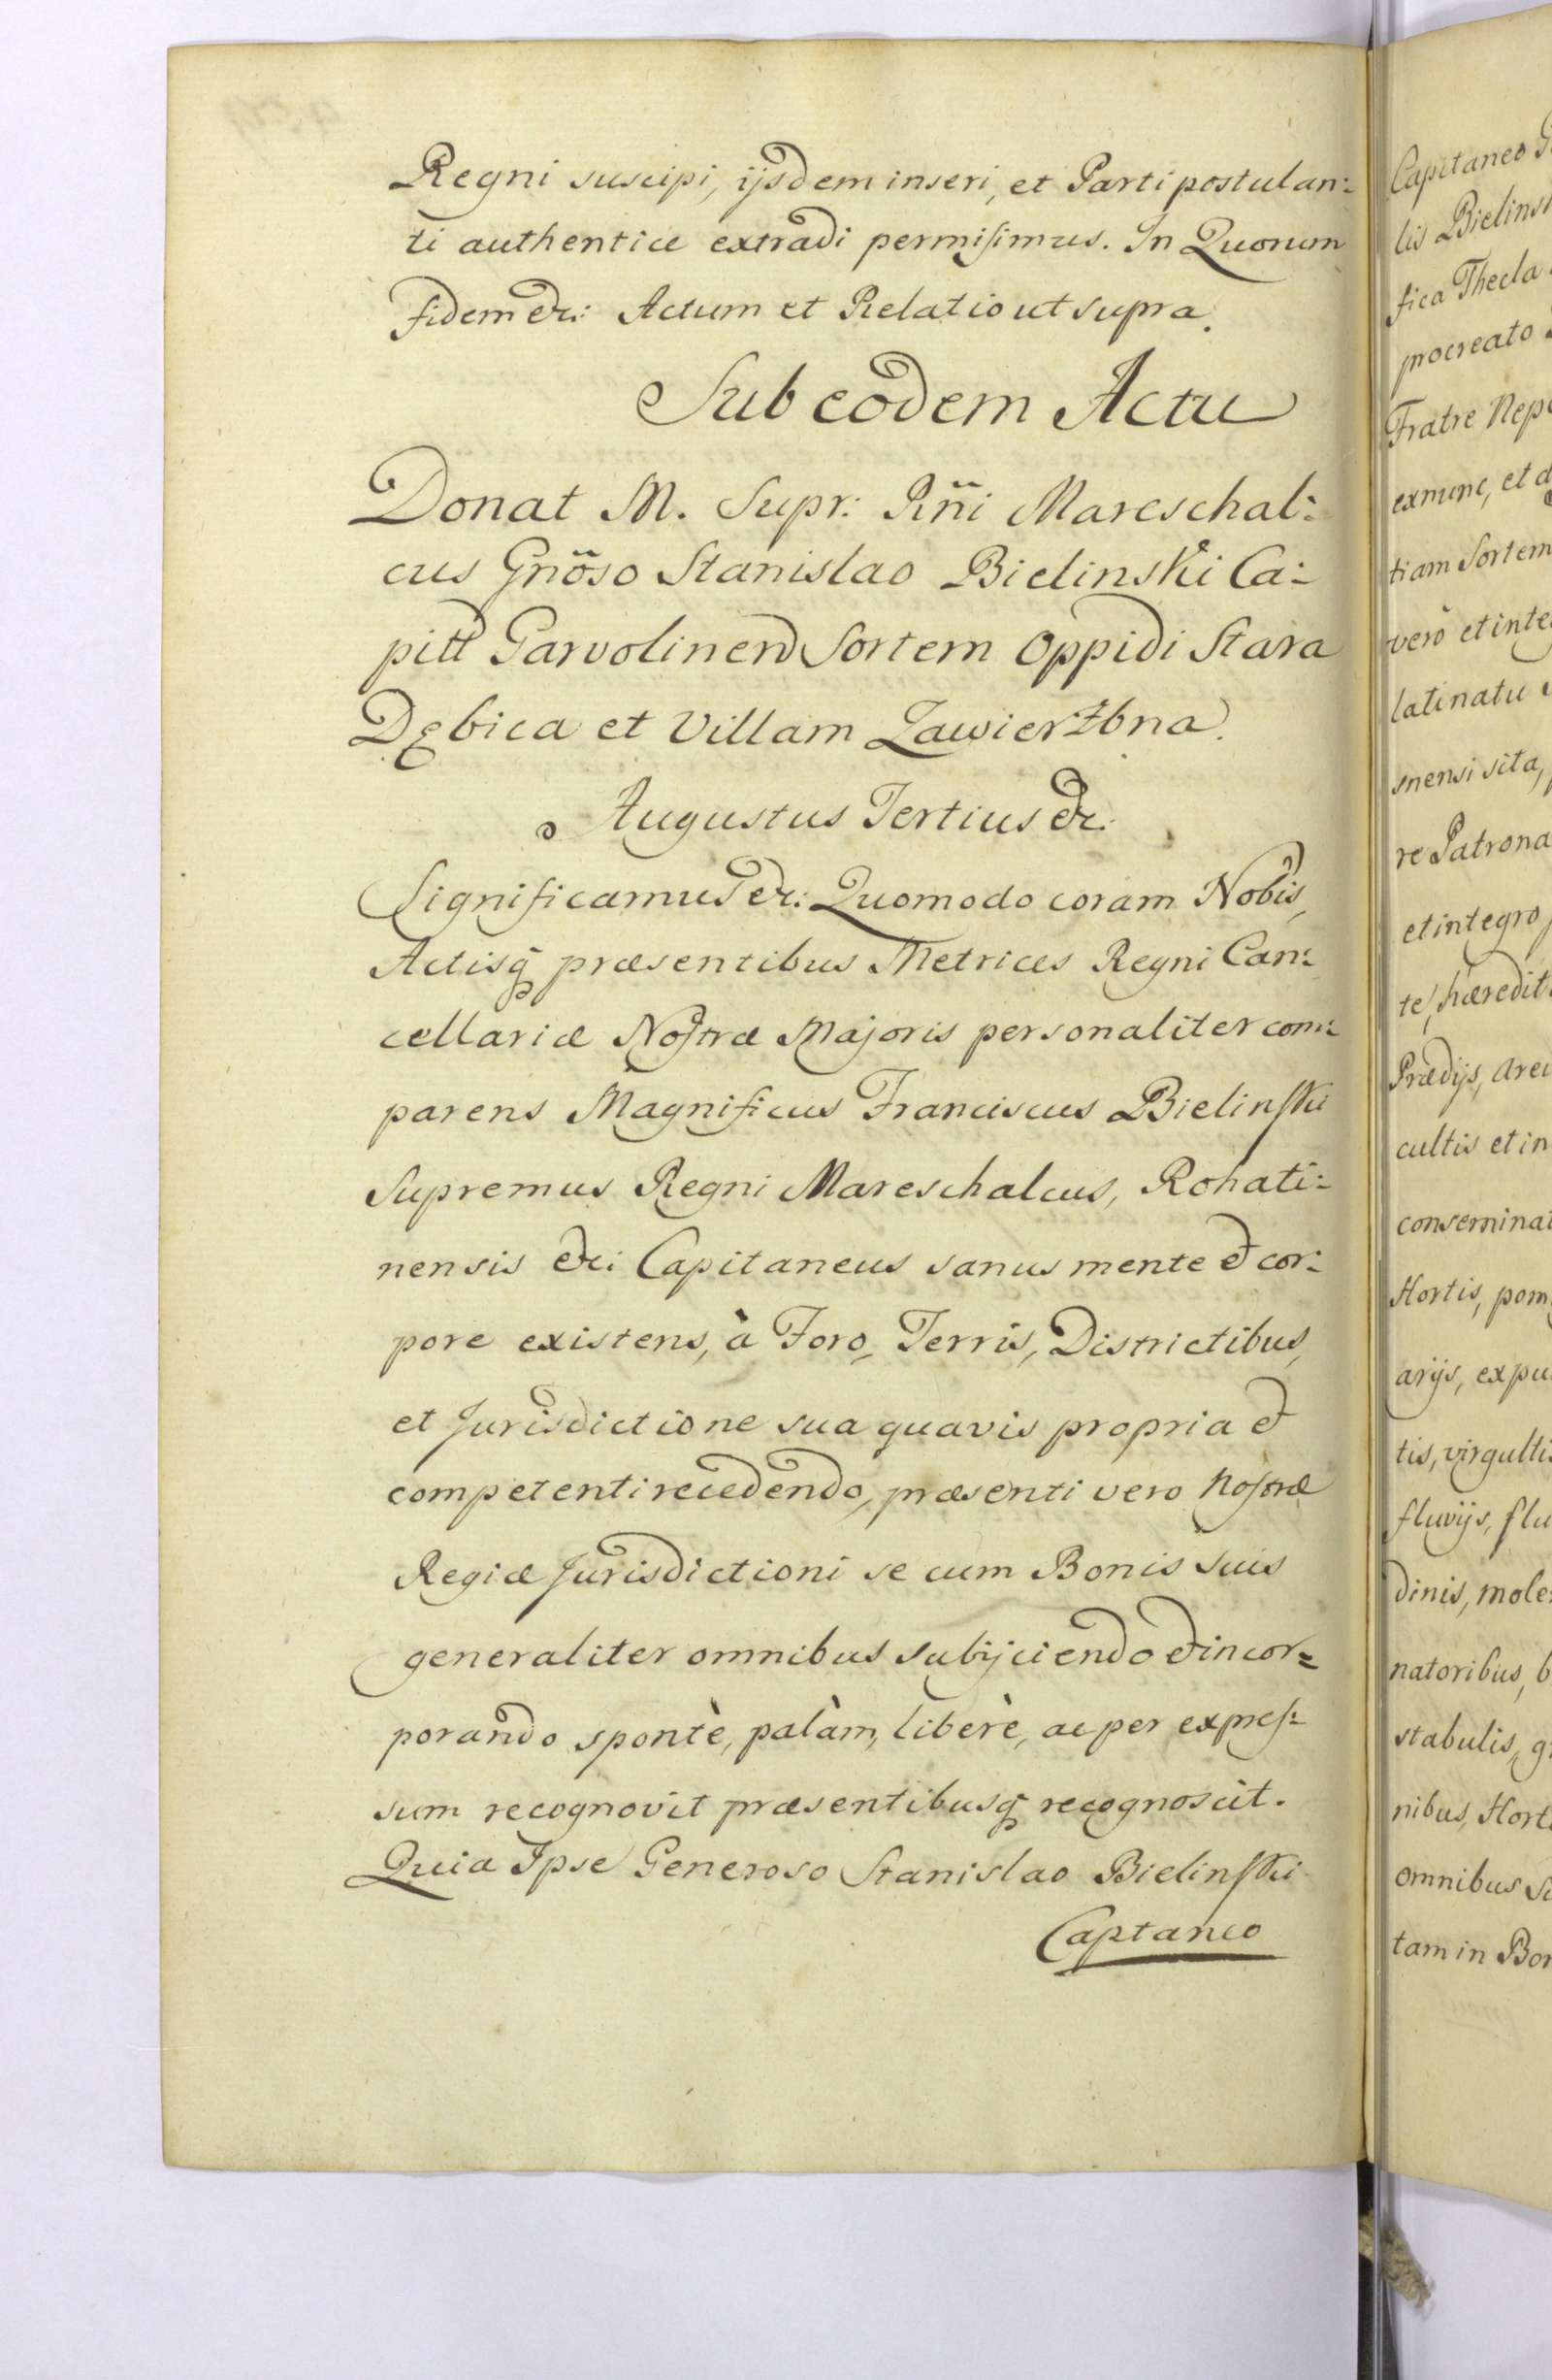 Regni suscipi, ijsdem inseri, et Parti postulan:
ti authentice extradi permisimus. In Quorum
fidem etc: Actum et Relatio ut supra.
Sub eodem Actu
Donat M. Supr: Rñi Mareschal:
cus Gnöso Stanislao Bielinski Ca:
pitt Garvolinen Sortem Oppidi Stara
Dębica et Villam Zawierżbna.
Augustus Tertius etc:
Significamus etc: Quomodo coram Nobis,
Actisq præsentibus Metrices Regni Can:
cellariæ Nostræ Majoris personaliter com:
parens Magnificus Franciscus Bielinski
Supremus Regni Mareschalcus, Rohati:
nensis etc: Capitaneus sanus mente et cor:
pore existens, à Foro, Terris, Districtibus,
et Jurisdictione sua quavis propria et
competenti recedendo, præsenti vero Nostræ
Regiæ Jurisdictioni se cum Bonis suis
generaliter omnibus subijciendo et incor:
porando spontè, palàm, liberè, ac per expres:
sum recognovit præsentibusq recognoscit.
Quia Ipse Generoso Stanislao Bielinski
Captaneo
Capitaneo
lis Bielins
fica Thecla
procreato
Fratre Nep
exnunc, et d
tiam Sortem
verò et inte
latinatu
mensi sita,
re Patrona
et integro
te, hæredit
Prædijs, area
cultis et in
conseminat
Hortis, pom
arijs, expu
tis, virgulti
fluvijs, flu
dinis, mole
natoribus, b
stabulis, g
nibus, Hort
omnibus
tam in Bon